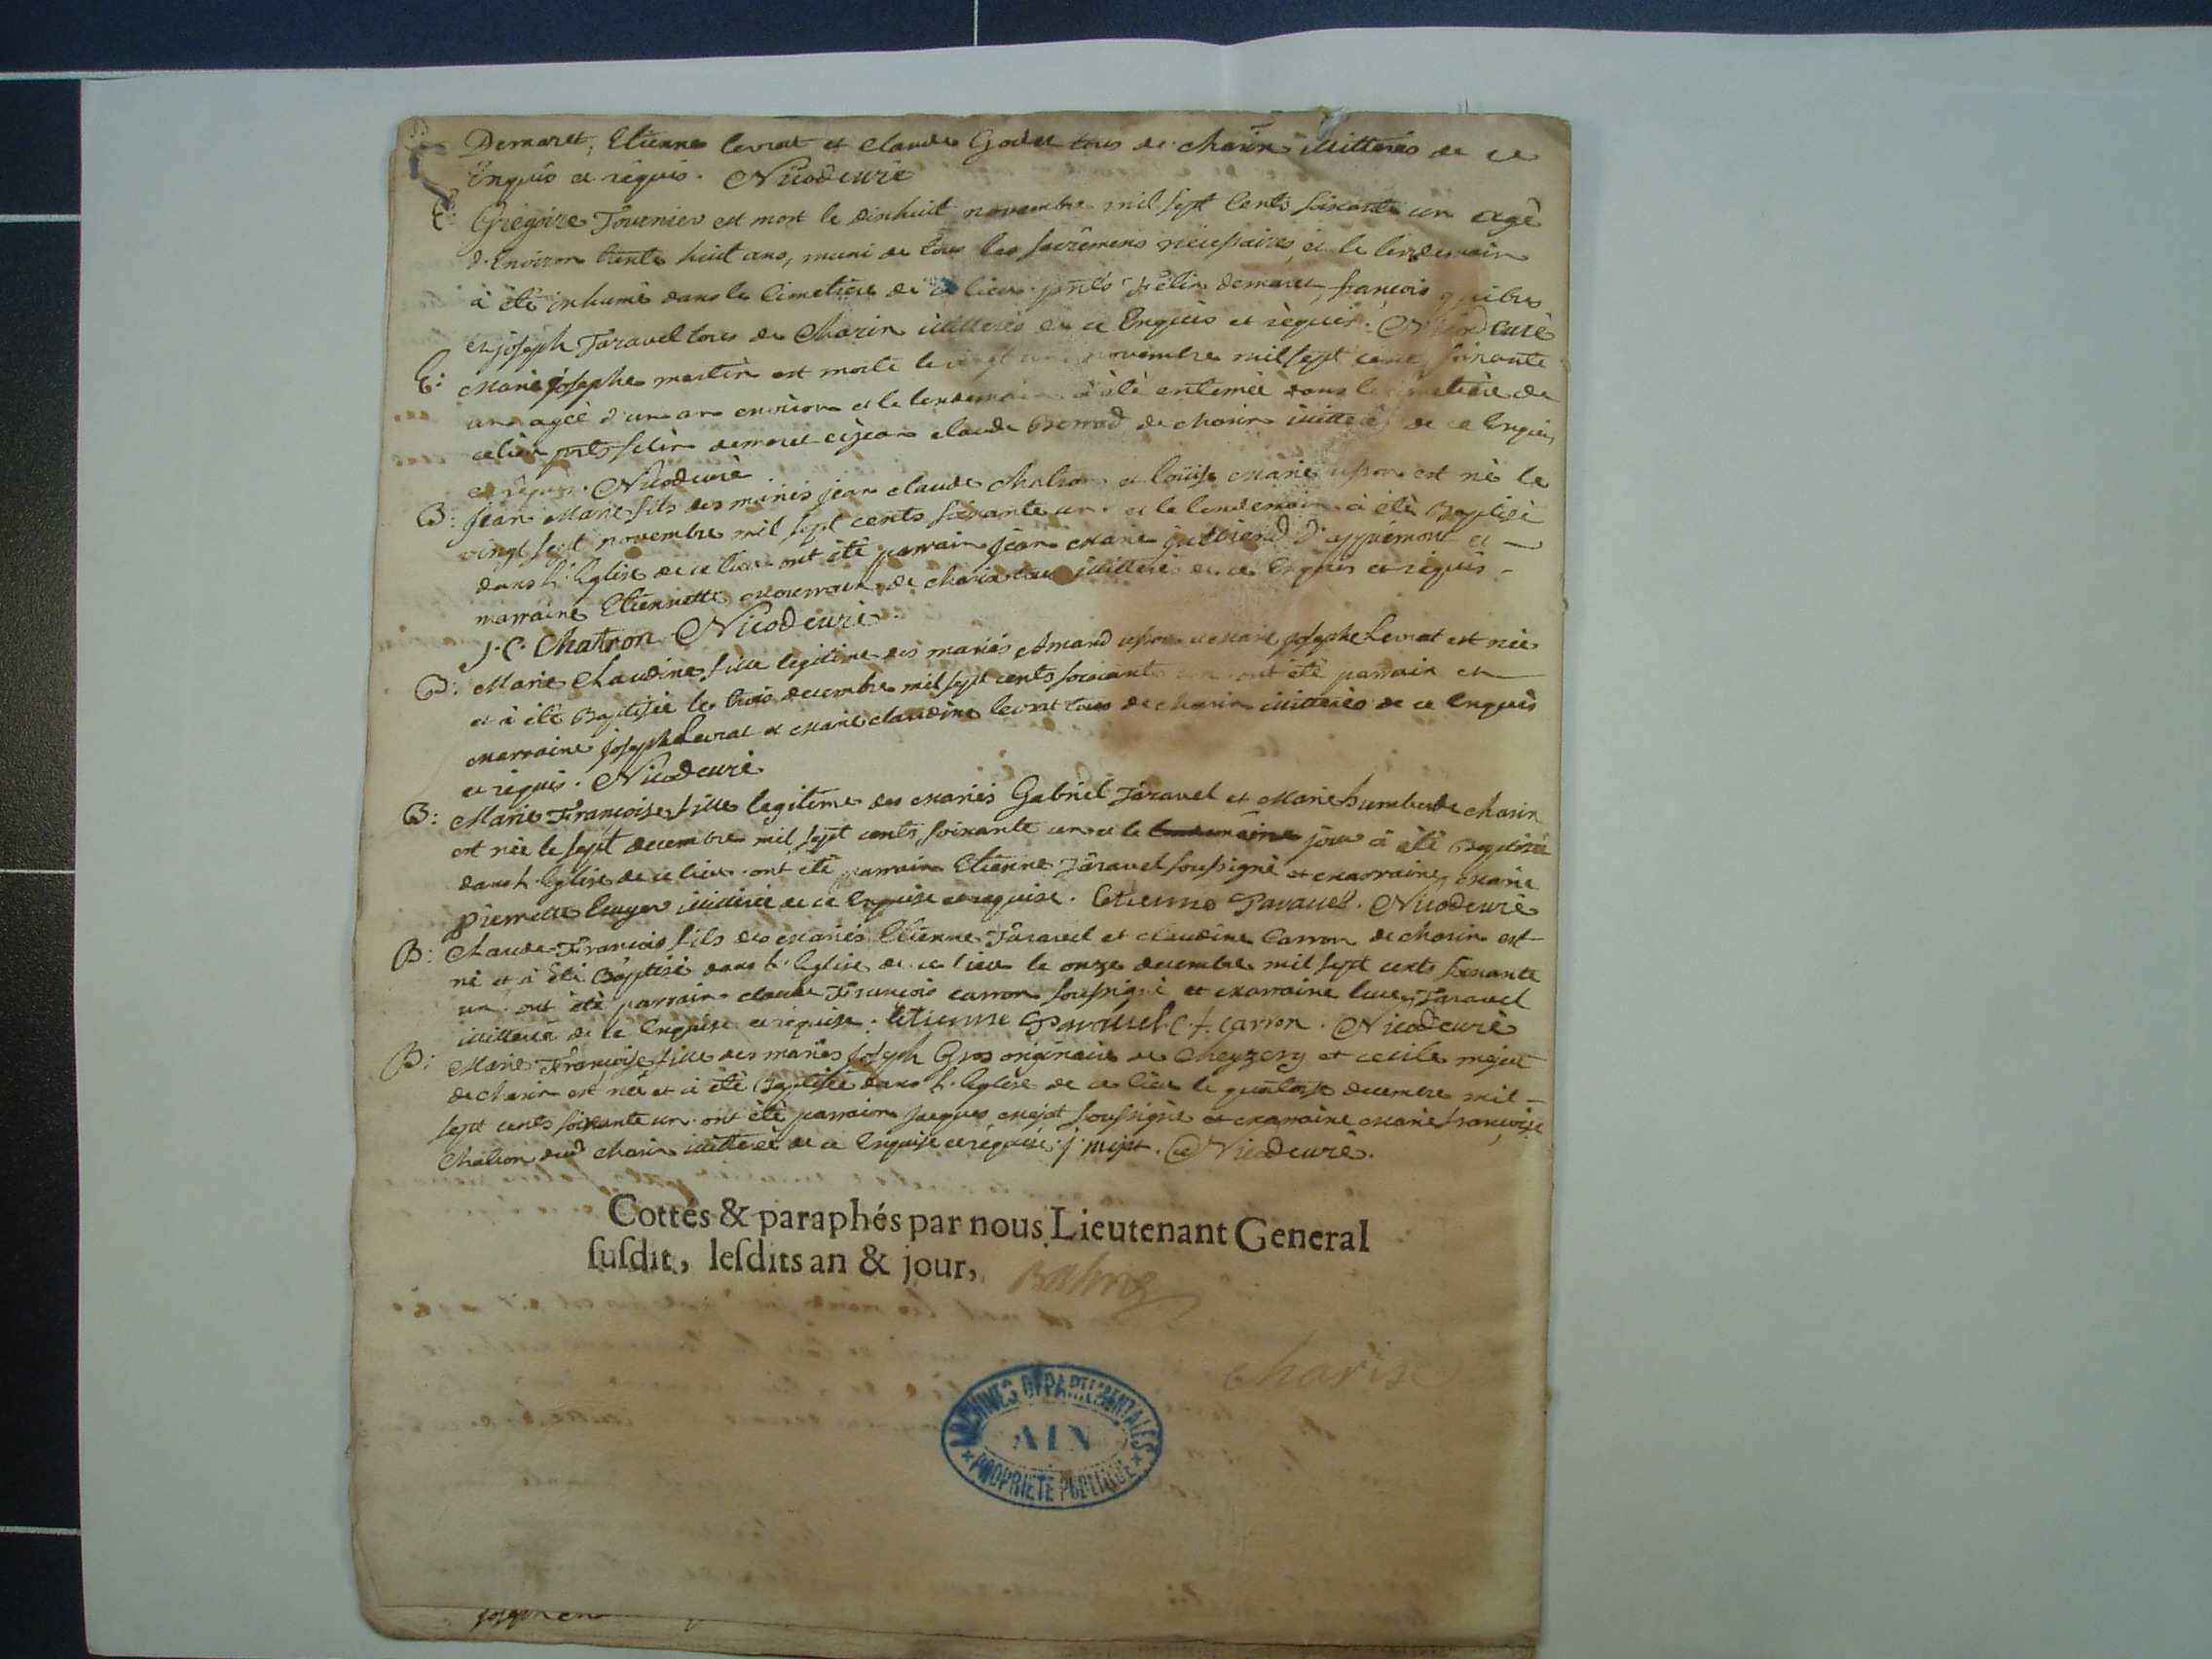 Demaret, Etienne levrat et Claude Godet tous de charix illitterés de ce
Enquis et requis. Nicod curé
E: Gregoire Tournier est mort le dixhuit novembre mil sept Cents soixante un agé
d'Environ trente huit ans, muni de tous les sacrêmens necessaires, et le lendemain
à êtê inhumê dans le Cimetiere de ce lieu. pnts Félix demaret, françois
et joseph Taravel tous de Charix illitterés de ce Enquis et requis. Nicod curé
E: Marie josephe martin est morte le vingt novembre mil sept cent soixante
un agée d'un an environ et le lendemain à été enterrée dans le cimetiere de
ce lieu pnts felix demaret et jean claude de charix illitterés de ce Enquis
et requis. Nicod curé
B: Jean Marie fils des mariés jean claude Chatron et Loüise Marie est né le
vingt sept novembre mil sept cents soixante un et le lendemain à été Baptisé
dans L'Eglise de ce lieu ont été parrain jean marie D'appremont et
marraine Etiennette de charix tous illitterés de ce Enquis et requis
J. C. Chatron Nicod curé
B: Marie Claudine fille legitime des mariés Amand et Marie josephe Levrat est née
et à été Baptisée le trois decembre mil sept cents soixante un ont été parrain et
marraine joseph Levrat et Marie claudine levrat tous de charix illitterés de ce Enquis
et requis. Nicod curé
B: Marie Françoise fille legitime des mariés Gabriel Taravel et Marie humbert de charix
est née le sept decembre mil sept cents soixante un et le jour à été Baptisée
dans L'Eglise de ce lieu. ont été parrain Etienne Taravel soussigné et marraine Marie
pierrette illiterée de ce Enquise et requise. Etienne Tavauel. Nicod curé
B: Claude-François fils des mariés Etienne Taravel et claudine Carron de charix est
né et à été Baptisé dans L'Eglise de ce lieu le onze decembre mil sept cents soixante
un. ont été parrain claude François carron soussigné et marraine Taravel
illitterée de ce Enquise et requise. Etienne Tavauel C. f. carron. Nicod curé
B: Marie-Françoise fille des mariés joseph Gros originaire de Cheyzery et cecile mojat
de charix est née et à été Baptisée dans L'Eglise de ce lieu le quatorze decembre mil
sept cents soixante un. ont été parrain jacques mojat soussigné et marraine Marie françoise
Chatron dud charix illitterée de ce Enquise et requise. j. mojat. Nicod curé.
Cottés & paraphés par nous Lieutenant General
ſuſdit, leſdits an & jour,
charix
ARCHIVES DÉPARTEMENTALES
AIN
PROPRIÉTÉ PUBLIQUE